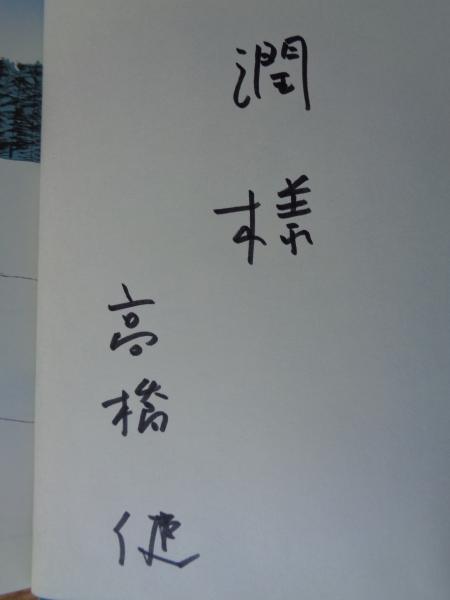 潤様
高橋健